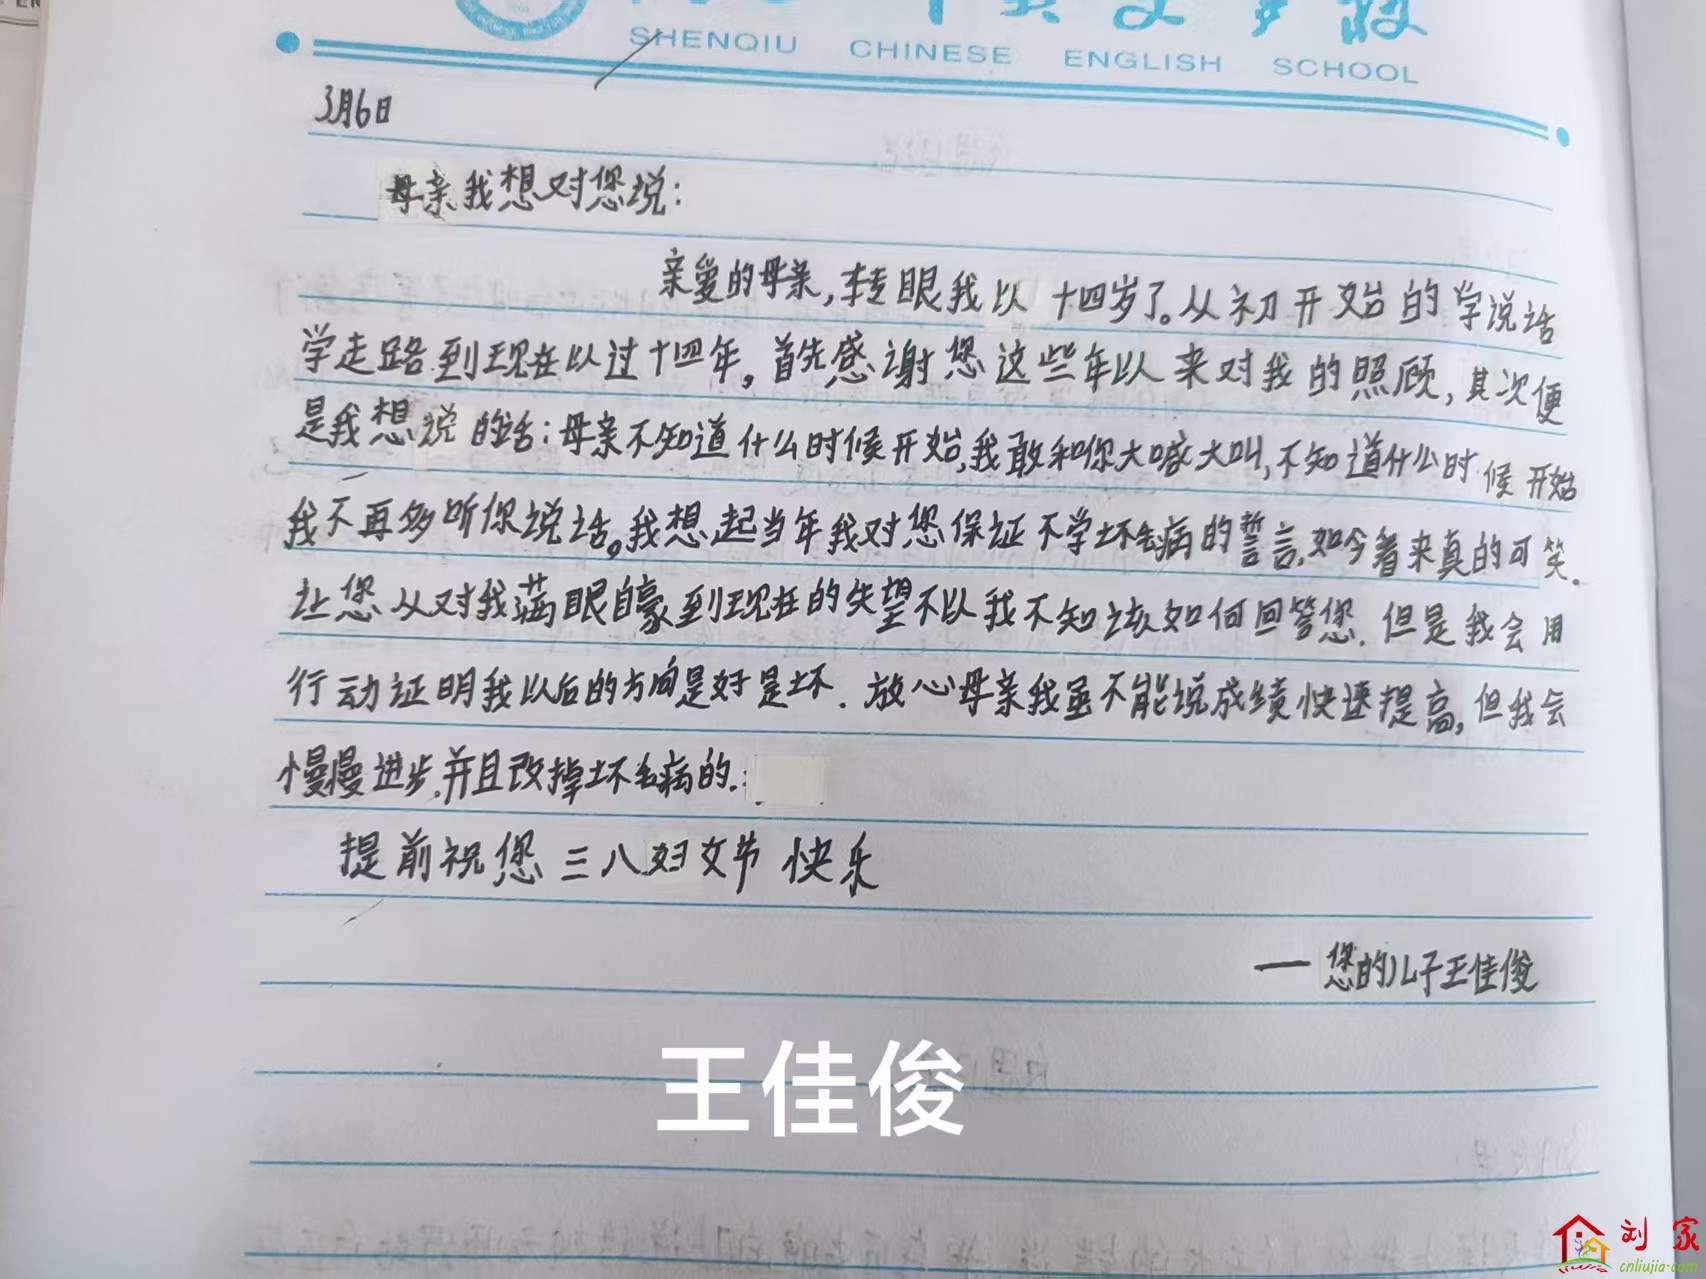 SHENQIU CHINESE ENGLISH SCHOOL
3月6日
母亲我想对您说：
亲爱的母亲，转眼我以十四岁了。从初开始的学说话
学走路到现在以过十四年。首先感谢您这些年以来对我的照顾，其次便
是我想说的话：母亲不知道什么时候开始，我敢和你大喊大叫，不知道什么时候开始
我不再多听你说话。我想起当年我对您保证不学坏毛病的誓言，如今看来真的可笑。
让您从对我满眼自豪到现在的失望不以我不知该如何回答您．但是我会用
行动证明我以后的方向是好是坏．放心母亲我虽不能说成绩快速提高，但我会
慢慢进步，并且改掉坏毛病的．
提前祝您三八妇女节快乐
一您的儿子王佳俊
王佳俊
刘家
cnliujia.com